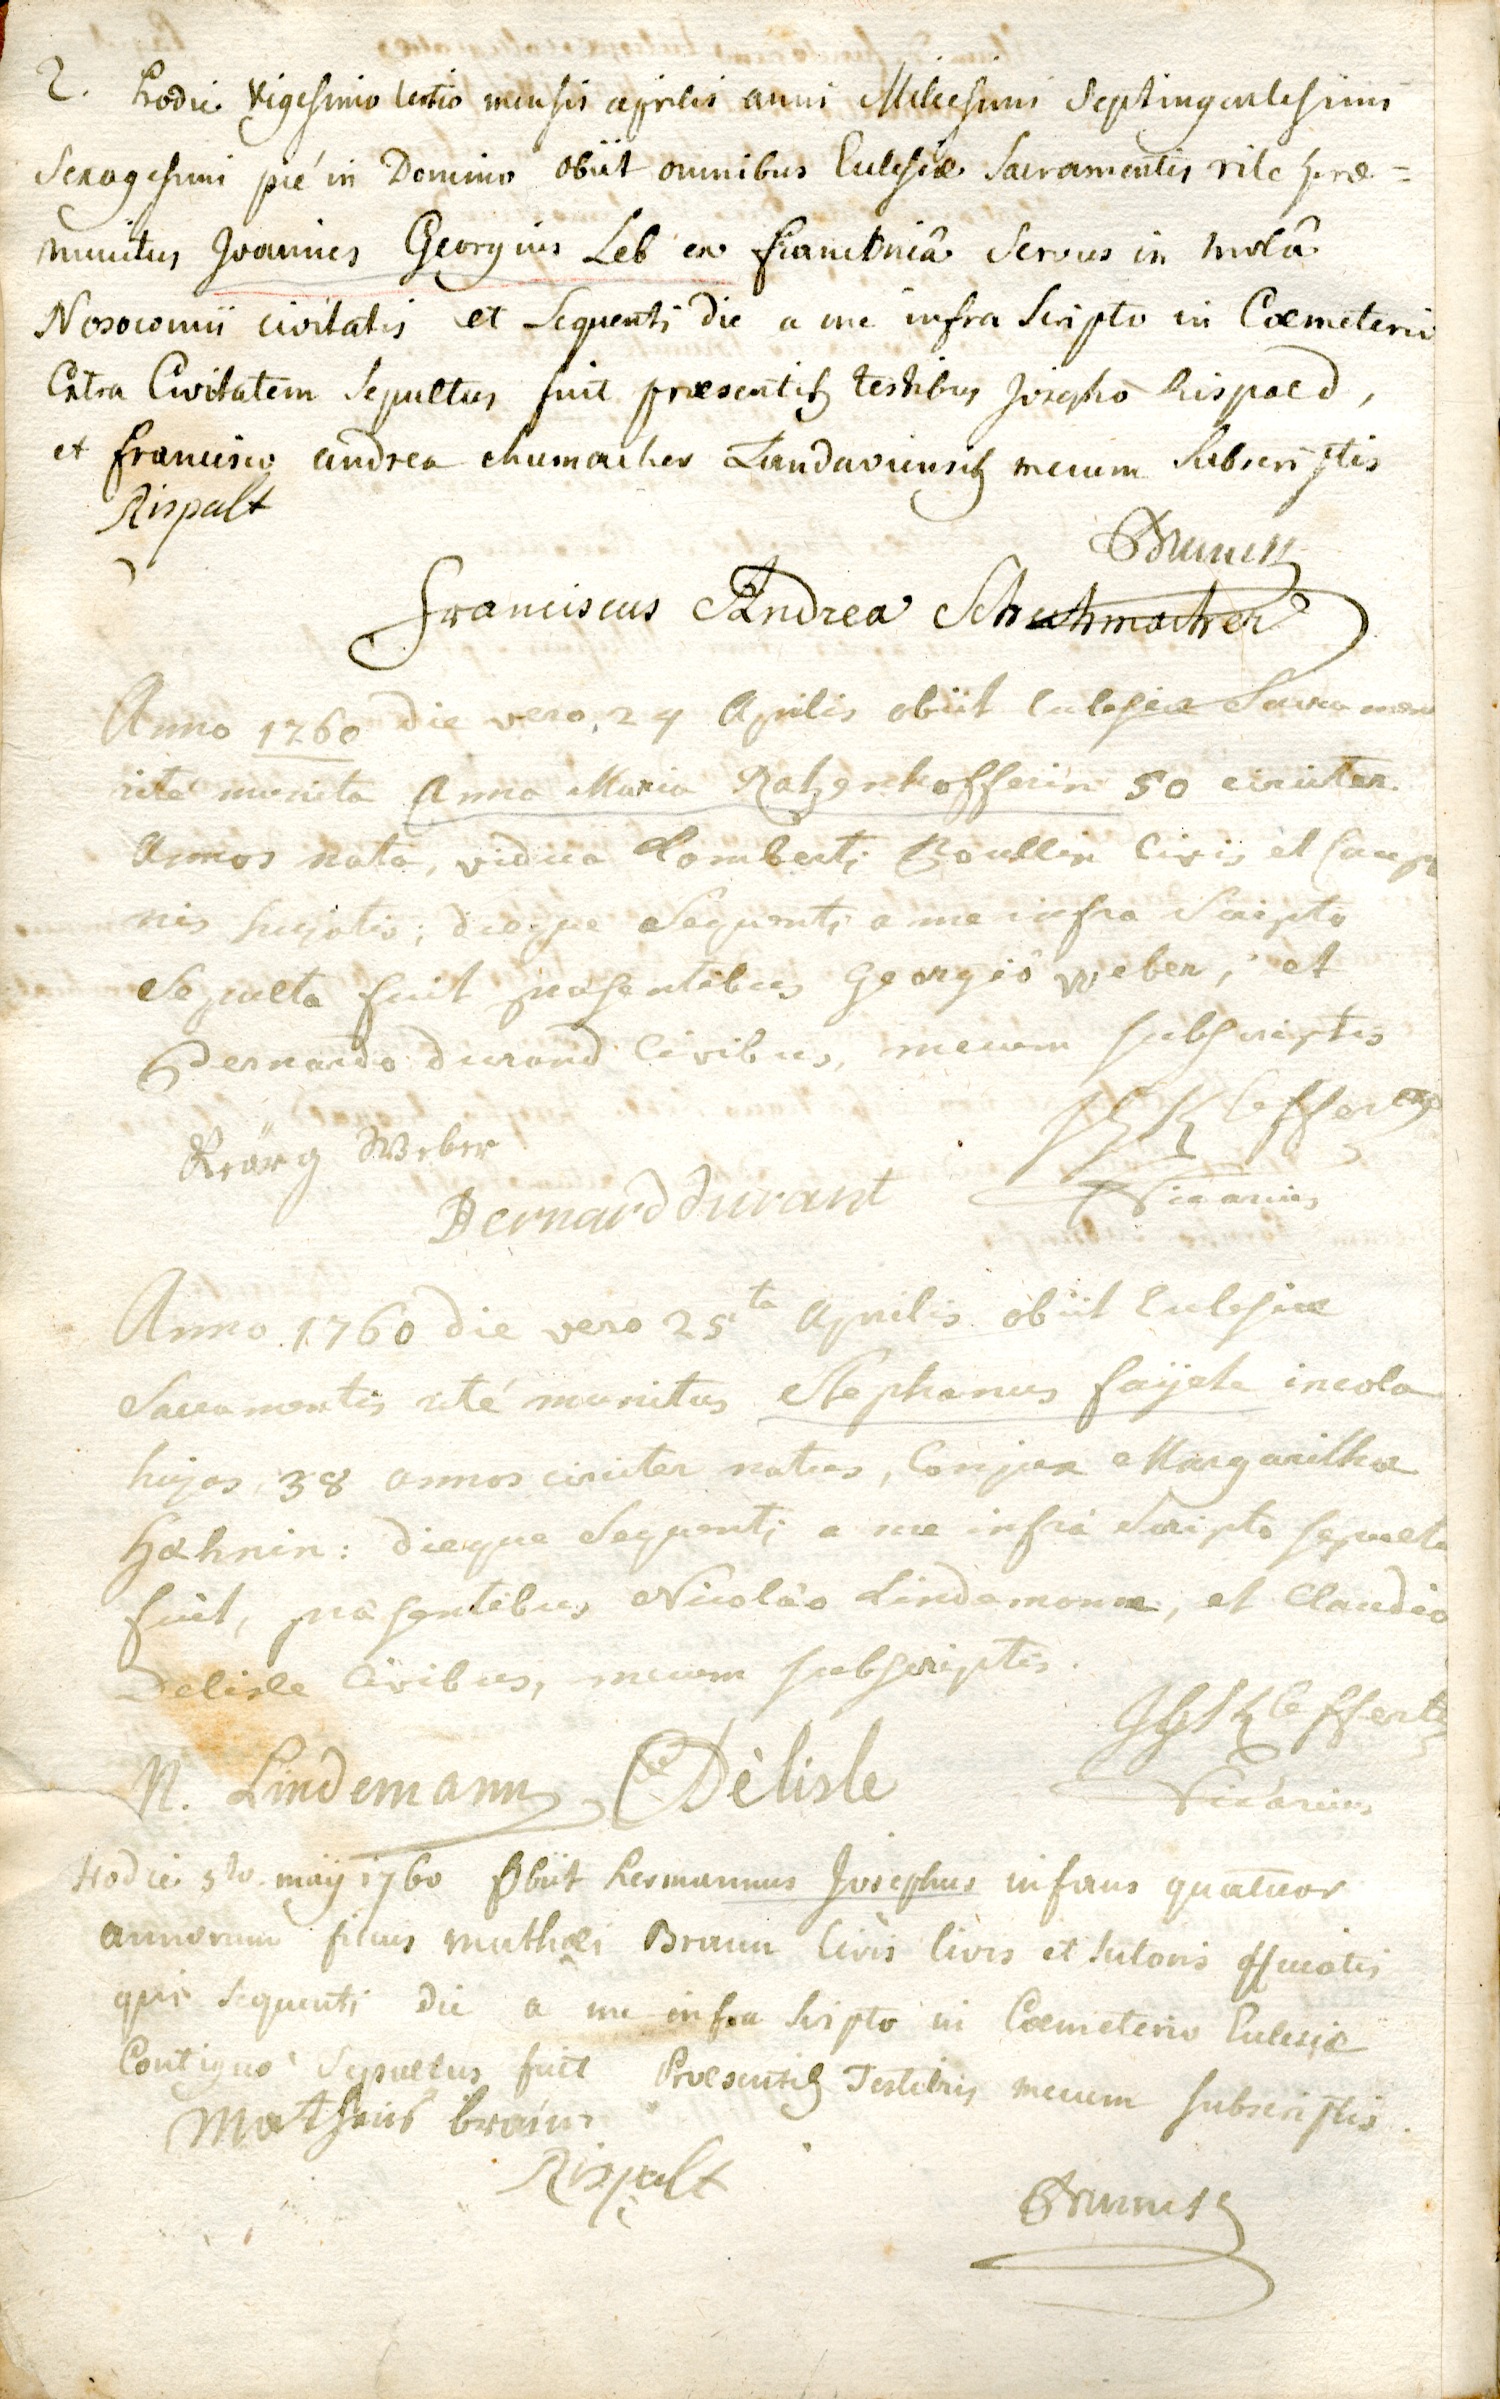 2. Hodie vigesimo tertio mensis aprilis anni Millesimi Septingentesimi
Sexagesimi pié in Domino obiit omnibus Ecclesiæ Sacramentis rite præ=
munitus Joannes Georgius Leb ex franconiâ Servus in molâ
Nosocomii civitatis et Sequenti die a me infra Scripto in Cœmeterio
Extra Civitatem Sepultus fuit præsentib testibus Josepho Rispaed,
et francisco andrea chumacher Landaviensib mecum Subscriptis
Rispalt
Franciscus Andrea Schuhmacher
Anno 1760 die vero 24 Aprilis obiit Ecclesiæ Sacramen
rité munita Anna Maria Ratzenhofferin 50 circiter
Annos nata, vidua Lamberti Boullin Civis et Caupo
nis hujatis; dieque Sequenti a me infra Scripto
Sepulta fuit præsentibus Georgiô Weber, et
Bernardo durand Civibus, mecum subscriptis
Georg Weber
Bernard durant
Vicarius
Anno 1760 die vero 25ta Aprilis obiit Ecclesiæ
Sacramentis rité munitus Stephanus faijete incola
hujas, 38 annos circiter natus, Conjux Margarithæ
Hahnin: dieque Sequenti a me infrà Scripto sepulta
fuit, præsentibus Nicolâo Lindemann, et Claudio
Delisle Civibus, mecum subscriptis.
N. Lindemann Délisle
Vicarius
Hodie 5to maÿ 1760 obiit hermannus Josephus infans quatuor
annorum filius mathæi Braun Civis Civis et Sutoris
qui Sequenti die a me infra Scripto in Cœmeterio Ecclesiæ
Contiguo Sepultus fuit Præsentib Testibus mecum subscriptis.
Matheus braun
Rispalt